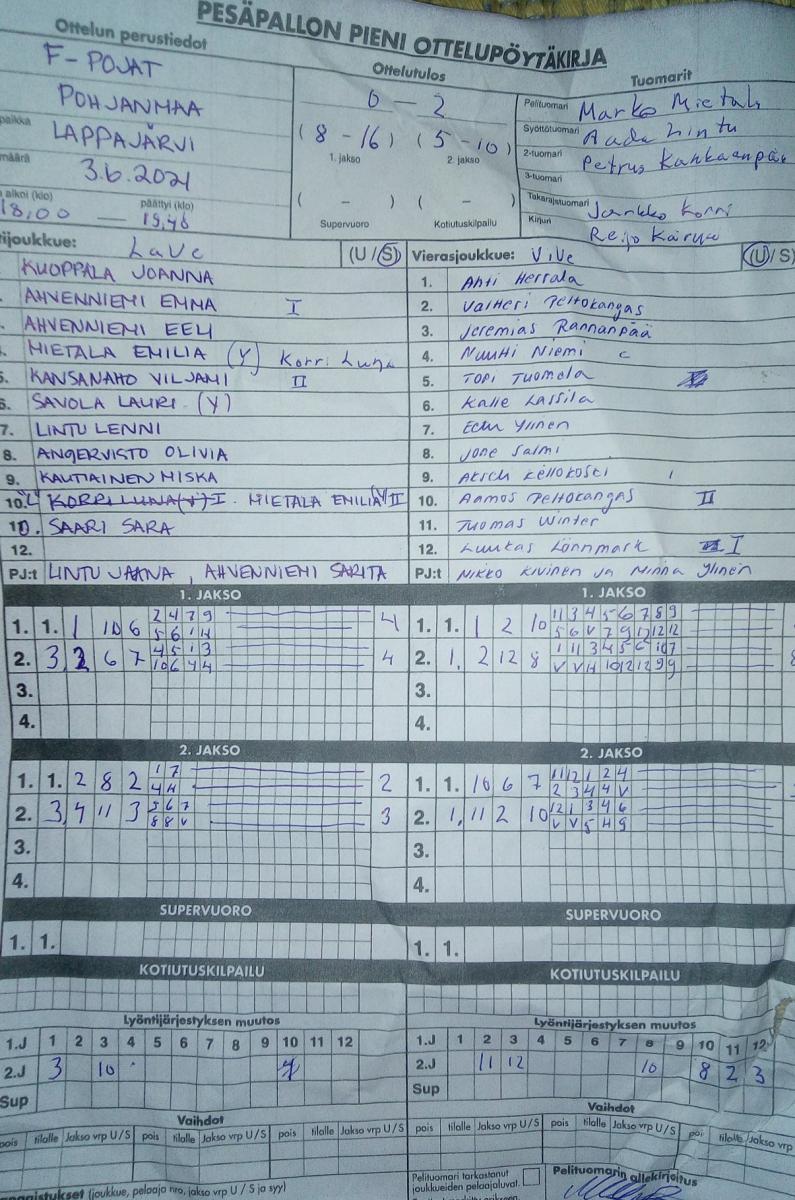 PESÄPALLON PIENI OTTELUPÖYTÄKIRJA
Ottelun perustiedot
Ottelutulos
Tuomarit
F-POJAT
POHJANMAA
LAPPAJÄRVI
3.6.2021
alkoi (klo) päättyi (klo)
18,00 — 19,46
0 - 2
(8 - 16) (5 - 10)
1. jakso 2. jakso
( - ) ( - )
Supervuoro Kotiutuskilpailu
Pelituomari Marko
Syöttötuomari Aada Lintu
2-tuomari Petrus Kankaanpää
3-tuomari
Takarajatuomari Jarkko Korri
Kirjuri Reijo
tijoukkue: LaVe (U/S)
KUOPPALA JOANNA
AHVENNIEMI EMMA I
AHVENNIEMI EELI
MIETALA EMILIA (Y) Korri Luna
5. KANSANAHO VILJAMI II
6. SAVOLA LAURI (Y)
7. LINTU LENNI
8. ANGERVISTO OLIVIA
9. KAUTIAINEN MISKA
10. KORRI LUNA (Y) I. MIETALA EMILIA II
SAARI SARA
12.
PJ:t LINTU JAANA, AHVENNIEMI SARITA
Vierasjoukkue: ViVe (U/S)
1. Ahti Herrala
2. Valtteri Peltokangas
3. Jeremias Rannanpää
4. Nuutti Niemi c
5. Topi Tuomela
6. Kalle Lassila
7. Eetu Ylinen
8. Jone Salmi
9. Kellokoski
10. Aamos Peltokangas II
11. Tuomas Winter
12. Luukas Lönnmark I
PJ:t Nikko Kivinen ja Minna Ylinen
1. JAKSO
1. 1. 1 10 6 4
2. 3, 2 6 7 4
3.
4.
1. JAKSO
1. 1. 1 2 10
2. 1, 2 12 8
3.
4.
2. JAKSO
1. 1. 2 8 2 2
2. 3, 4 11 3 3
3.
4.
2. JAKSO
1. 1. 10 6 7
2. 1, 11 2 10
3.
4.
SUPERVUORO
1. 1.
SUPERVUORO
1. 1.
KOTIUTUSKILPAILU
KOTIUTUSKILPAILU
Lyöntijärjestyksen muutos
1.J 1 2 3 4 5 6 7 8 9 10 11 12
2.J 3 10
Sup
Lyöntijärjestyksen muutos
1.J 1 2 3 4 5 6 7 8 9 10 11 12
2.J 11 12 10 8 2 3
Sup
Vaihdot
pois tilalle Jakso vrp U/S pois tilalle Jakso vrp U/S pois tilalle Jakso vrp U/S
Vaihdot
pois tilalle Jakso vrp U/S pois tilalle Jakso vrp U/S poi tilalle Jakso vrp
(joukkue, pelaaja nro, jakso vrp U/S ja syy)
Pelituomari tarkastanut
joukkueiden pelaajaluvat.
Pelituomarin allekirjoitus